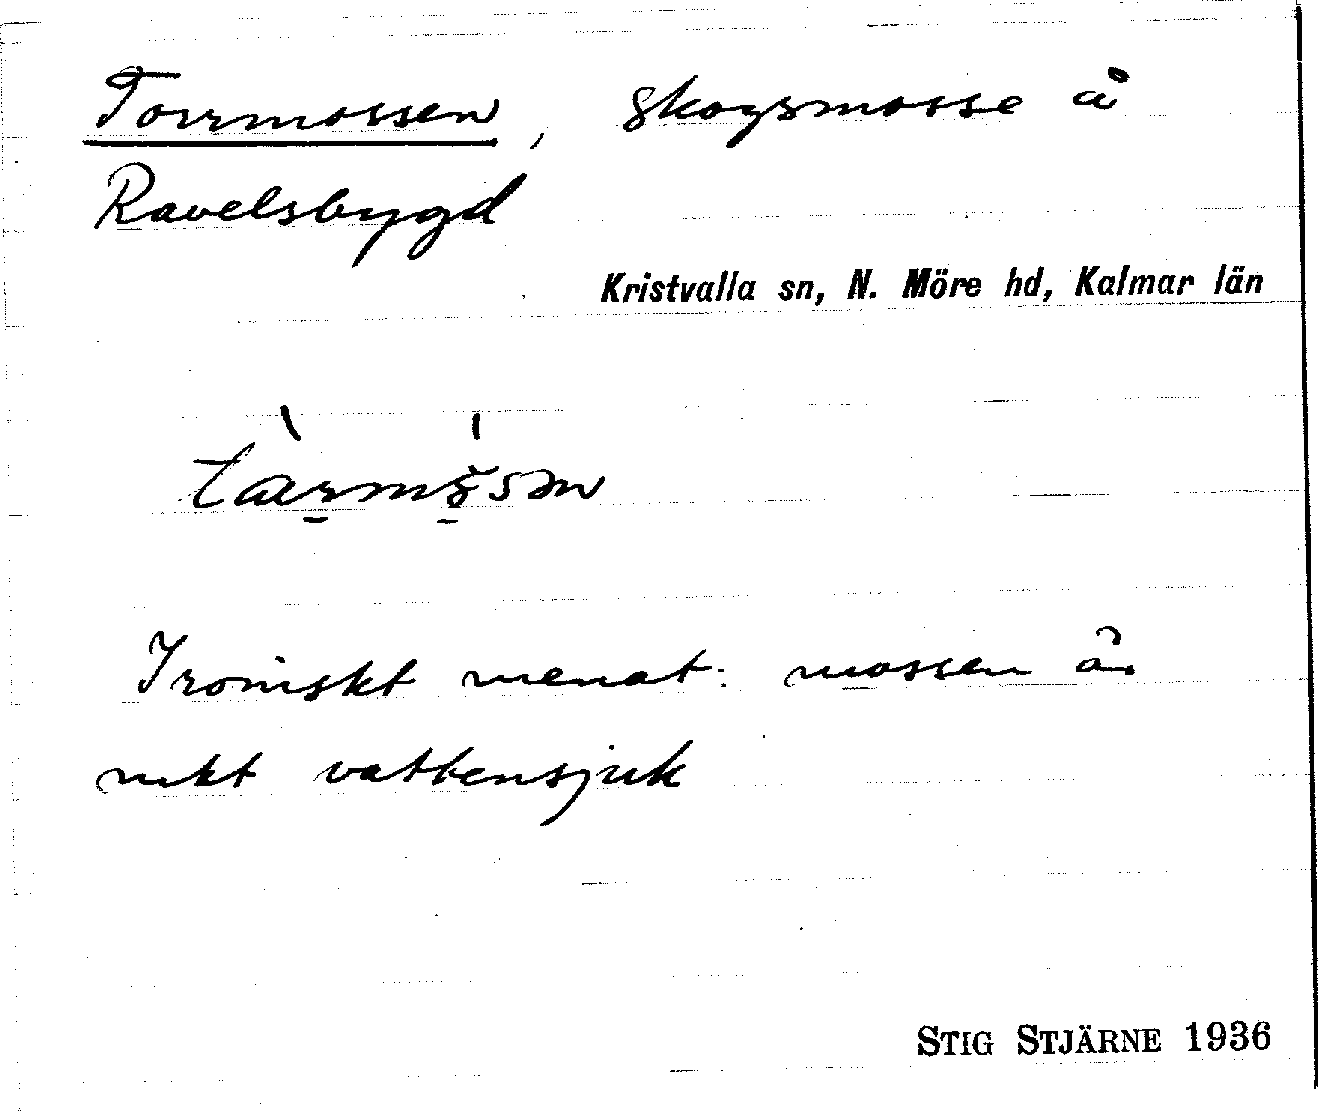 Torrmossen, skogsmosse å
Ravelsbygd
Kristvalla sn, N. Möre hd, Kalmar län
Ironiskt menat: mossen är
rikt vattensjuk
STIG STJÄRNE 1936